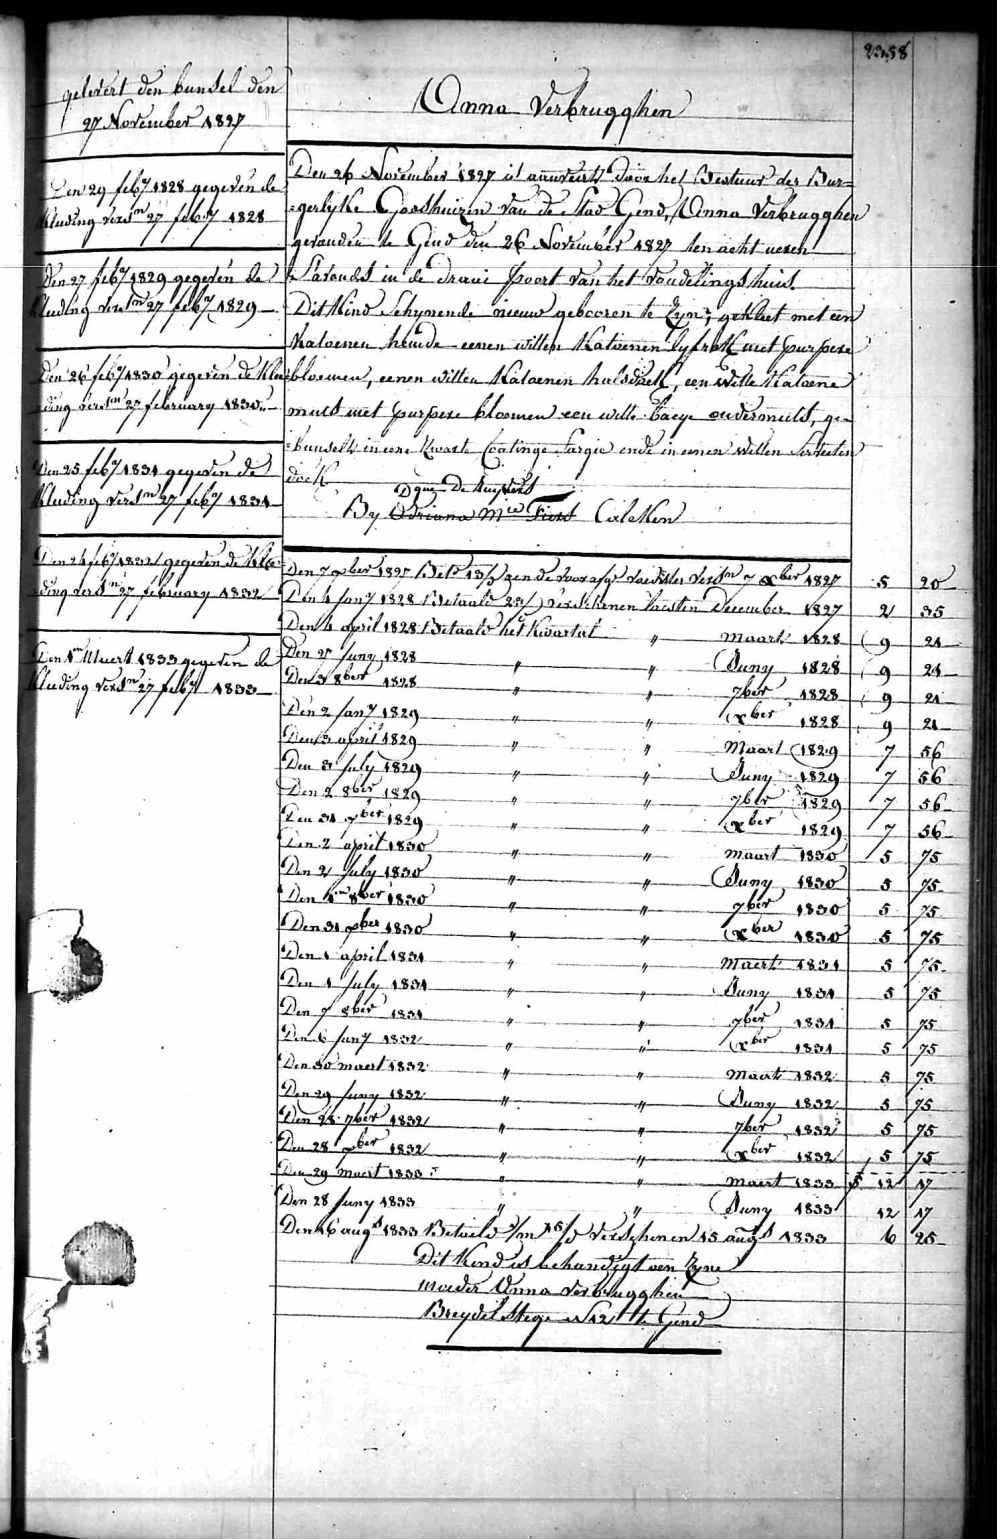 2358
gelevert den bunsel den
27 November 1827
Den 29 feb.y 1828 gegeven de
Kleeding vers.m 27 feb.y 1828
Den 27 feb.y 1829 gegeven de
Kleeding vers.m 27 feb.y 1829
Den 26 feb.y 1830 gegeven de Klee-
ding vers.m 27 february 1830
Den 25 feb.y 1831 gegeven de
Kleeding vers.m 27 feb.y 1831
Den 24 feb.y 1832 gegeven de Klee-
ding vers.m 27 february 1832
Den 1.m Maert 1833 gegeven de
Kleeding vers.m 27 feb.y 1833
Anna Verbrugghen
Den 26 November 1827 is aenveirt door het Bestuur der Bur=
=gerlyke Godshuizen van de Stad Gend, Anna Verbrugghen
gevonden te Gend den 26 November 1827 ten acht ueren
's avonds in de draai poort van het vondelingshuis.
Dit Kind Schynende nieuw gebooren te Zyn, gekleet met een
Katoenen hemde eenen witten Katoenen lyfrok met purpere
bloemen, eenen witten Katoenen halsdoek, een witte Katoene
muts met purpere bloemen een witte baeye ondermuts, ge=
=bunselt in eene Kwaete Coatinge Sargie ende in eenen Witten Servietten
doek
De Kuypers
By Adriana M.ie Fiers Calcken
Den 7 xber 1827 Bet.d aen de voorafge Voedster vers.m 7 xber 1827 5 20
Den 4 Jan.y 1828 Betaald 23/ Verschenen laesten December 1827 2 35
Den 4 april 1828 Betaald het Kwartaal " Maart 1828 9 21
Den 27 Juny 1828 " " Juny 1828 9 21
Den 3 8ber 1828 " " 7ber 1828 9 21
Den 2 Jan.y 1829 " " xber 1828 9 21
Den 3 april 1829 " " Maart 1829 7 56
Den 3 July 1829 " " Juny 1829 7 56
Den 2 8ber 1829 " " 7ber 1829 7 56
Den 31 xber 1829 " " xber 1829 7 56
Den 2 april 1830 " " Maart 1830 5 75
Den 2 July 1830 " " Juny 1830 5 75
Den 1.m 8ber 1830 " " 7ber 1830 5 75
Den 31 xber 1830 " " xber 1830 5 75
Den 1 april 1831 " " Maert 1831 5 75
Den 1 July 1831 " " Juny 1831 5 75
Den 7 8ber 1831 " " 7ber 1831 5 75
Den 6 Jan.y 1832 " " xber 1831 5 75
Den 30 maert 1832 " " Maert 1832 5 75
Den 29 Juny 1832 " " Juny 1832 5 75
Den 28 7ber 1832 " " 7ber 1832 5 75
Den 28 xber 1832 " " xber 1832 5 75
Den 29 Maert 1833 " " Maert 1833 12 17
Den 28 Juny 1833 " " Juny 1833 12 17
Den 16 aug.t 1833 Betaeld Verschenen 15 aug.t 1833 6 25
Dit Kind is behandigt aen Zyne
moeder Anna Verbrugghen
Breydel Stege N 12 te Gend